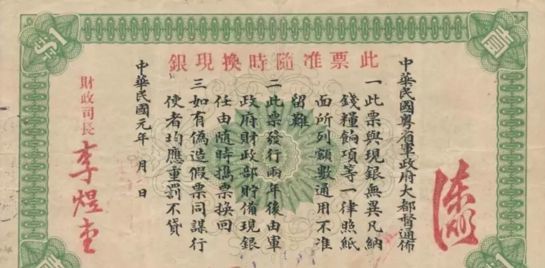 壹
1
此票准隨時換現銀
中華民國粵省軍政府大都督通佈
一此票與現銀無異凡納
錢糧餉項等一律照紙
面所列額數通用不准
留難
二此票發行兩年後由軍
政府財政部貯備現銀
任由隨時攜票換回
三如有偽造假票同謀行
使者均應重罰不貸
中華民國元年 月 日
財政司長
李煜堂